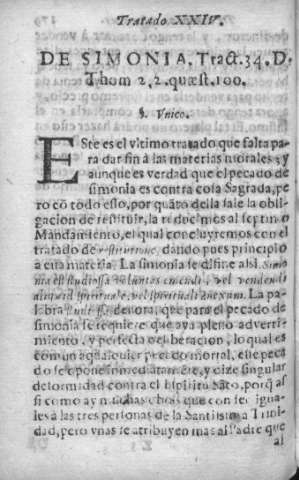 Tratado XXIV.
DE SIMONIA. Tract. 34. D.
Thom 2. 2. quæst. 100.
§. Vnico.
ESte es el vltimo tratado que falta pa
ra dar fin à las materias morales; y
aunque es verdad que el pecado de
simonia es contra cosa Sagrada, pe
ro cō todo esso, por quāto della sale la obli
gacion de restituir, la reduzimos al septimo
Mandamiento, el qual concluyremos con el
tratado de restitutione, dando pues principio
à esta materia. La simonia se difine assi. Simo
nia est studiosa voluntas emendi, vel vendendi
aliquid spirituale, vel spirituali annexum. La pa
labra studiosa, denota, que para el pecado de
simonia se requiere que aya pleno adverti-
miento, y perfecta deliberacion, lo qual es
comun a qualquier pecado mortal, este peca
do se opone inmediatamēte, y dize singular
deformidad contra el Espiritu Sāto, porq̄ as
si como ay muchas cosas que con ser igua-
les à las tres personas de la Santissima Trini-
dad, pero vnas se atribuyen mas al Padre que
al